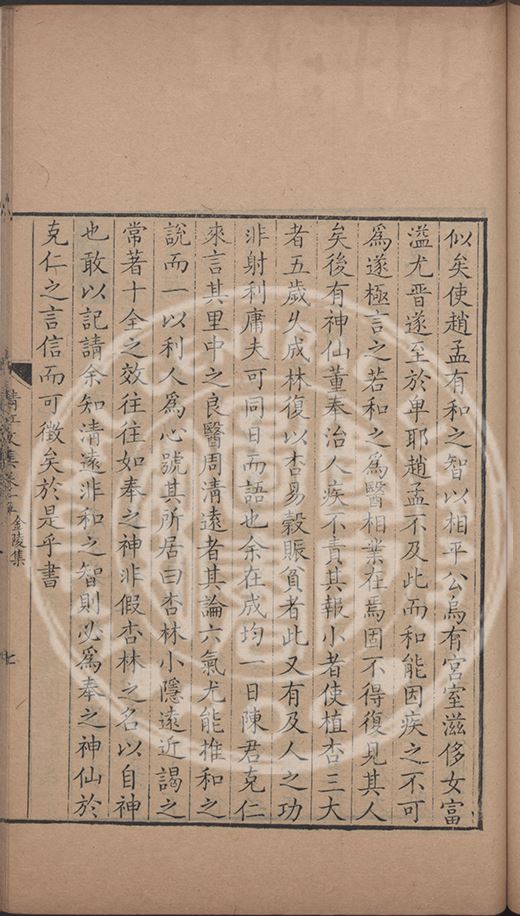 似矣使趙孟有和之智以相平公烏有宮室滋侈女富
溢尤晋遂至於卑耶趙孟不及此而和能因疾之不可
為遂極言之若和之為醫相業在焉固不得復見其人
矣後有神仙董奉治人疾不責其報小者使植杏三大
者五歲久成林復以杏易穀賑貧者此又有及人之功
非射利庸夫可同日而語也余在成均一日陳君克仁
來言其里中之良醫周清遠者其論六氣尤能推和之
說而一以利人為心號其所居曰杏林小隱遠近謁之
常著十全之效往往如奉之神非假杏林之名以自神
也敢以記請余知清遠非和之智則必為奉之神仙於
克仁之言信而可徵矣於是乎書
清江文集卷十
金陵集
七